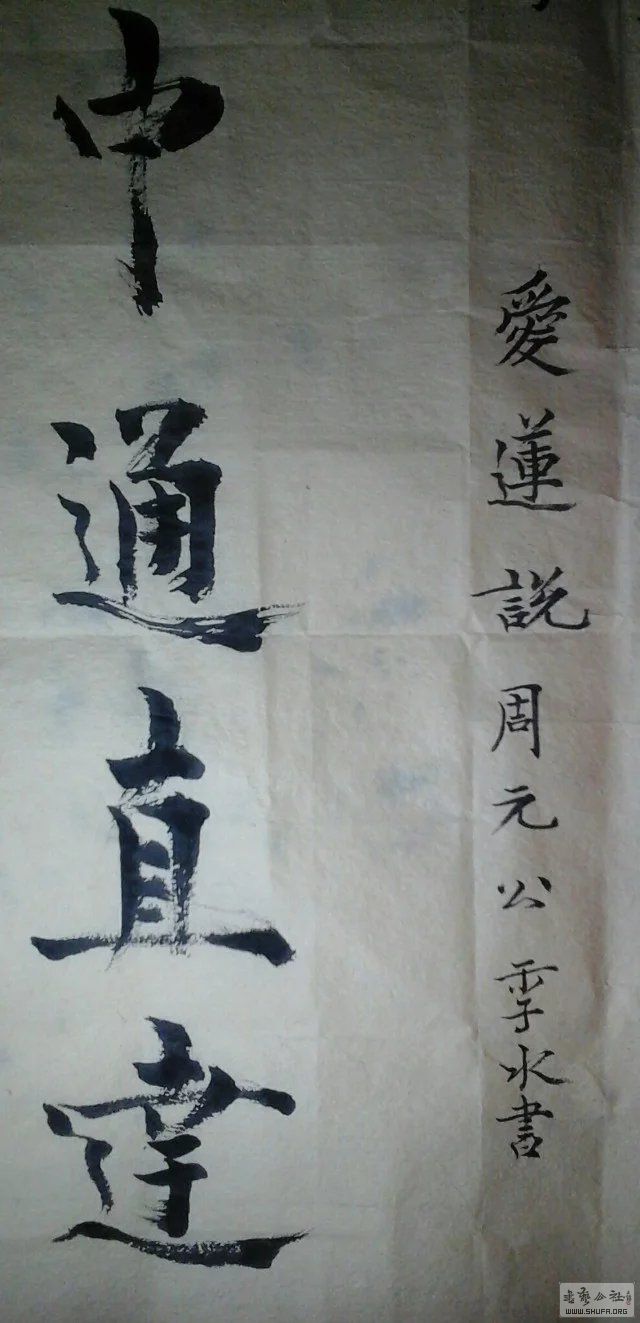 愛蓮説周元公 水書
中通直達
书艺公社
WWW.SHUFA.ORG